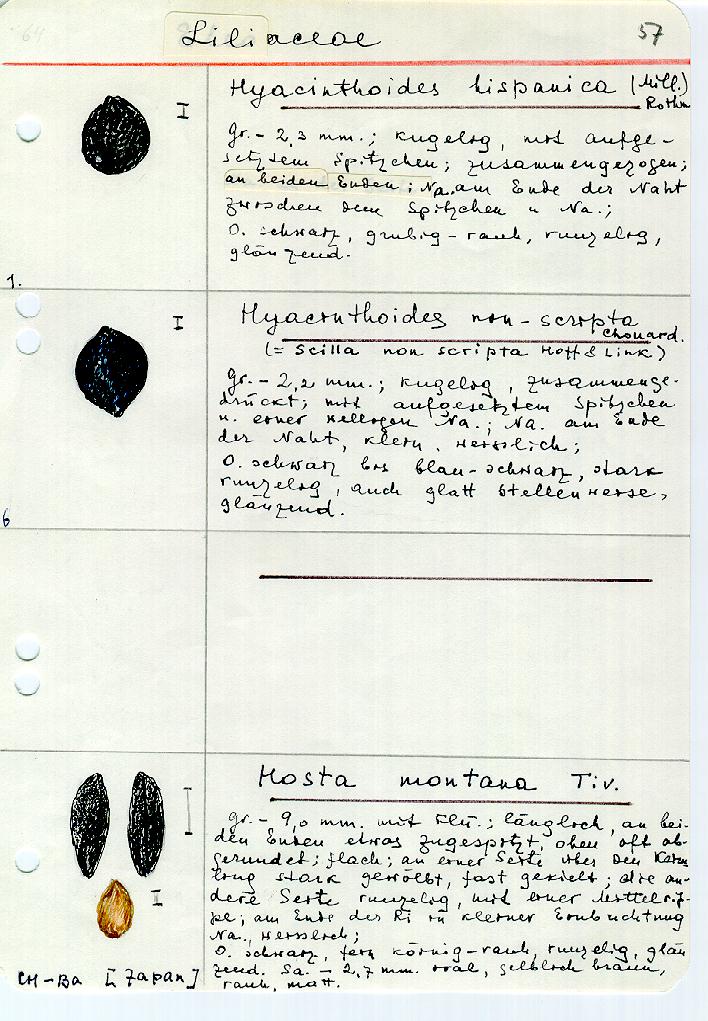 Liliaceae 57
Hyacinthoides hispanica (Mill.)
Rothm
Gr. - 2,3 mm.; kugelig, mit aufge-
setztem Spitzchen; zusammengezogen;
an beiden Enden; Na. am Ende der Naht
zwischen dem Spitzchen u Na.;
O. schwarz, grubig-rauh, runzelig,
glänzend.
1.
Hyacinthoides non-scripta
Chouard.
(= Scilla non scripta Hoff & Link)
Gr. - 2,2 mm.; kugelig, zusammenge-
drückt; mit aufgesetztem Spitzchen
u. einer Na.; Na. am Ende
der Naht, klein, weisslich;
O. schwarz bis blau-schwarz, stark
runzelig, auch glatt stellenweise,
glänzend.
6
Hosta montana Tiv.
Gr. - 9,0 mm. mit Flü.; länglich, an bei-
den Enden etwas zugespitzt, oben oft ab-
gerundet; flach; an einer Seite über den Kern
lang stark gewölbt, fast gekielt; die an-
dere Seite runzelig, mit einer Mittelrip-
pe; am Ende der Ri in kleiner Einbuchtung
Na., weisslich;
O. schwarz, fein körnig-rauh, runzelig, glän
zend. Sa. - 2,7 mm. oval, gelblich braun,
rauh, matt.
CH-Ba [Japan]